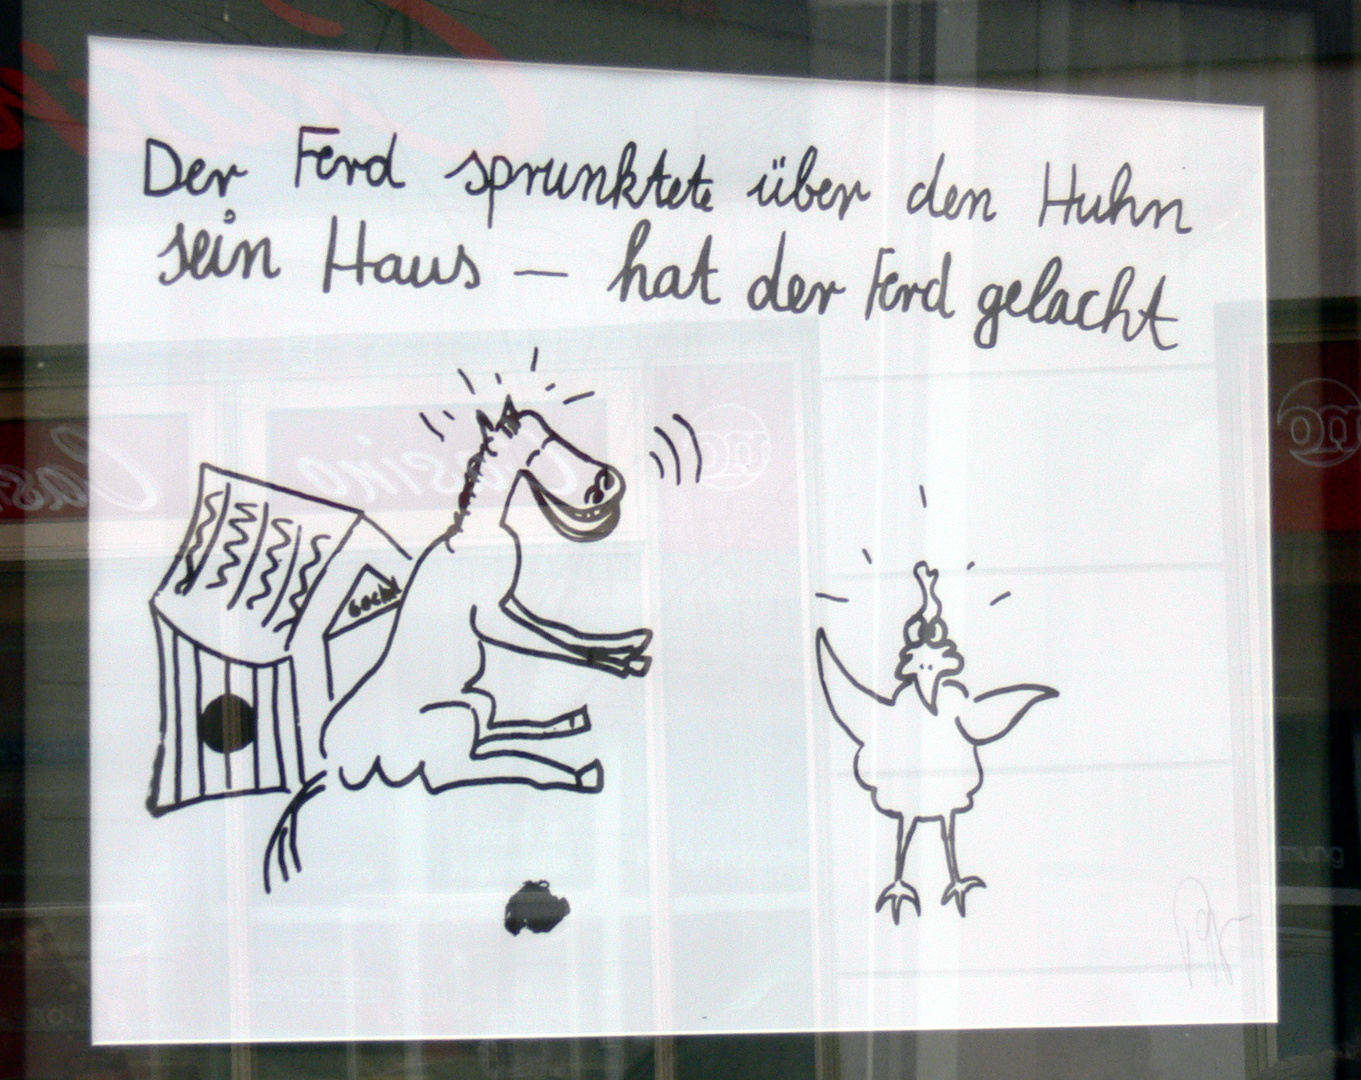 Der Ferd sprunktete über den Huhn
sein Haus — hat der Ferd gelacht
Casino